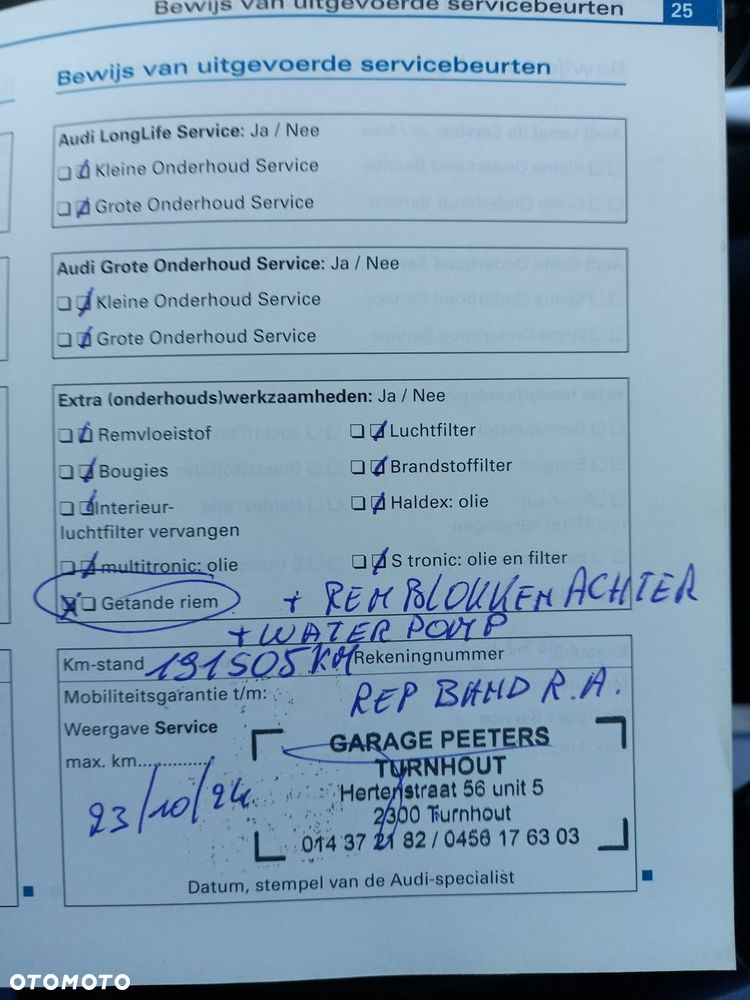 Bewijs van uitgevoerde servicebeurten 25
Bewijs van uitgevoerde servicebeurten
Audi LongLife Service: Ja / Nee
Kleine Onderhoud Service
Grote Onderhoud Service
Audi Grote Onderhoud Service: Ja / Nee
Kleine Onderhoud Service
Grote Onderhoud Service
Extra (onderhouds)werkzaamheden: Ja / Nee
Remvloeistof
Luchtfilter
Bougies
Brandstoffilter
Interieur-
luchtfilter vervangen
Haldex: olie
multitronic: olie
S tronic: olie en filter
Getande riem
+ REMBLOKKEN ACHTER
+ WATER POMP
Km-stand 191505 KM Rekeningnummer
Mobiliteitsgarantie t/m:
REP BAND R.A.
Weergave Service
max. km..............
23/10/24
GARAGE PEETERS
TURNHOUT
Hertenstraat 56 unit 5
2300 Turnhout
014 37 21 82 / 0456 17 63 03
Datum, stempel van de Audi-specialist
OTOMOTO